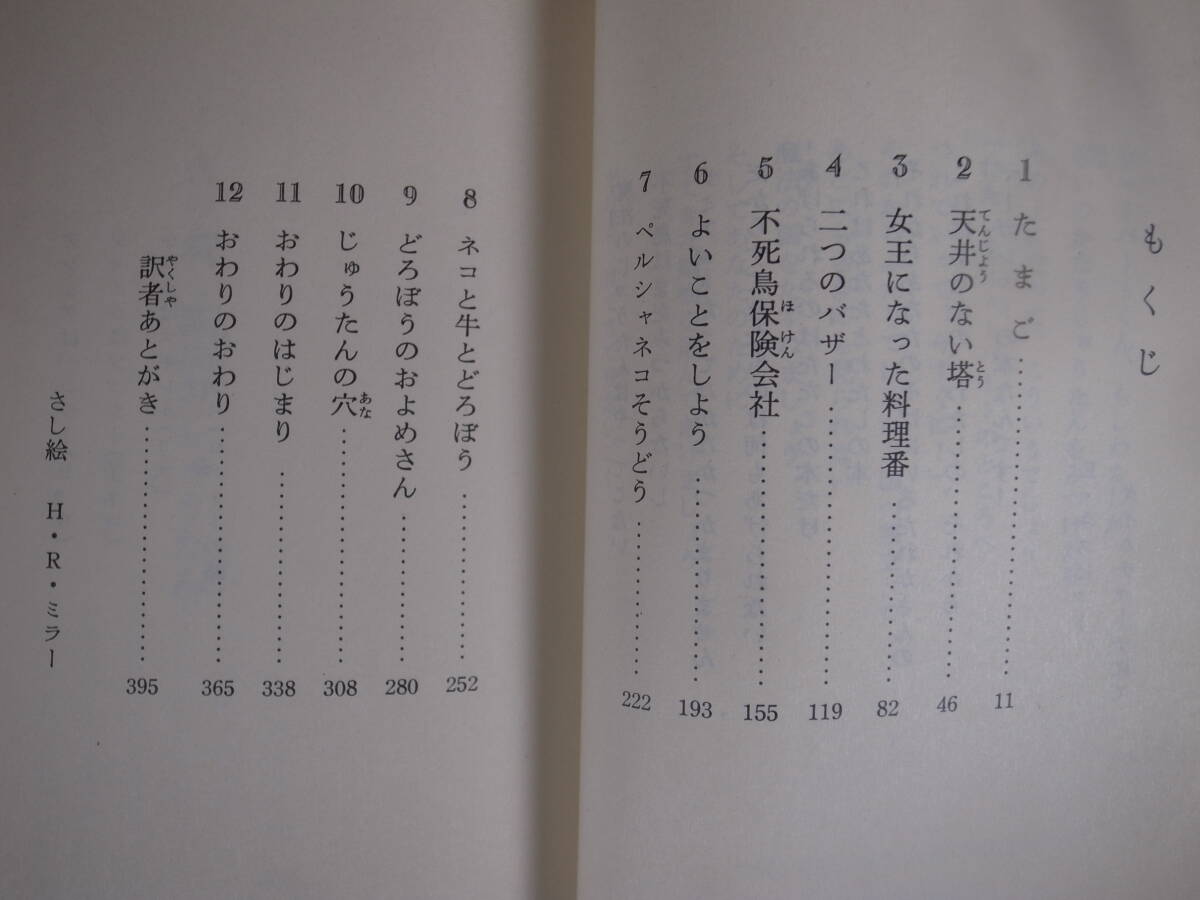 もくじ
1 たまご………………11
2 天井のない塔………………46
3 女王になった料理番………………82
4 二つのバザー………………119
5 不死鳥保険会社………………155
6 よいことをしよう………………193
7 ペルシャネコそうどう………………222
8 ネコと牛とどろぼう………………252
9 どろぼうのおよめさん………………280
10 じゅうたんの穴………………308
11 おわりのはじまり………………338
12 おわりのおわり………………365
訳者あとがき………………395
さし絵 H・R・ミラー